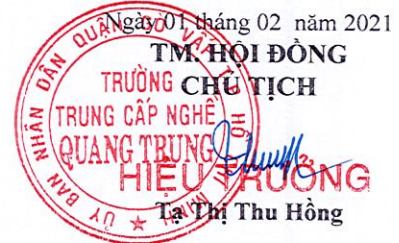 Ngày 01 tháng 02 năm 2021
TM. HỘI ĐỒNG
CHỦ TỊCH
ỦY BAN NHÂN DÂN QUẬN GÒ VẤP T.P HỒ CHÍ MINH
TRƯỜNG
TRUNG CẤP NGHỀ
QUANG TRUNG
HIỆU TRƯỞNG
Tạ Thị Thu Hồng